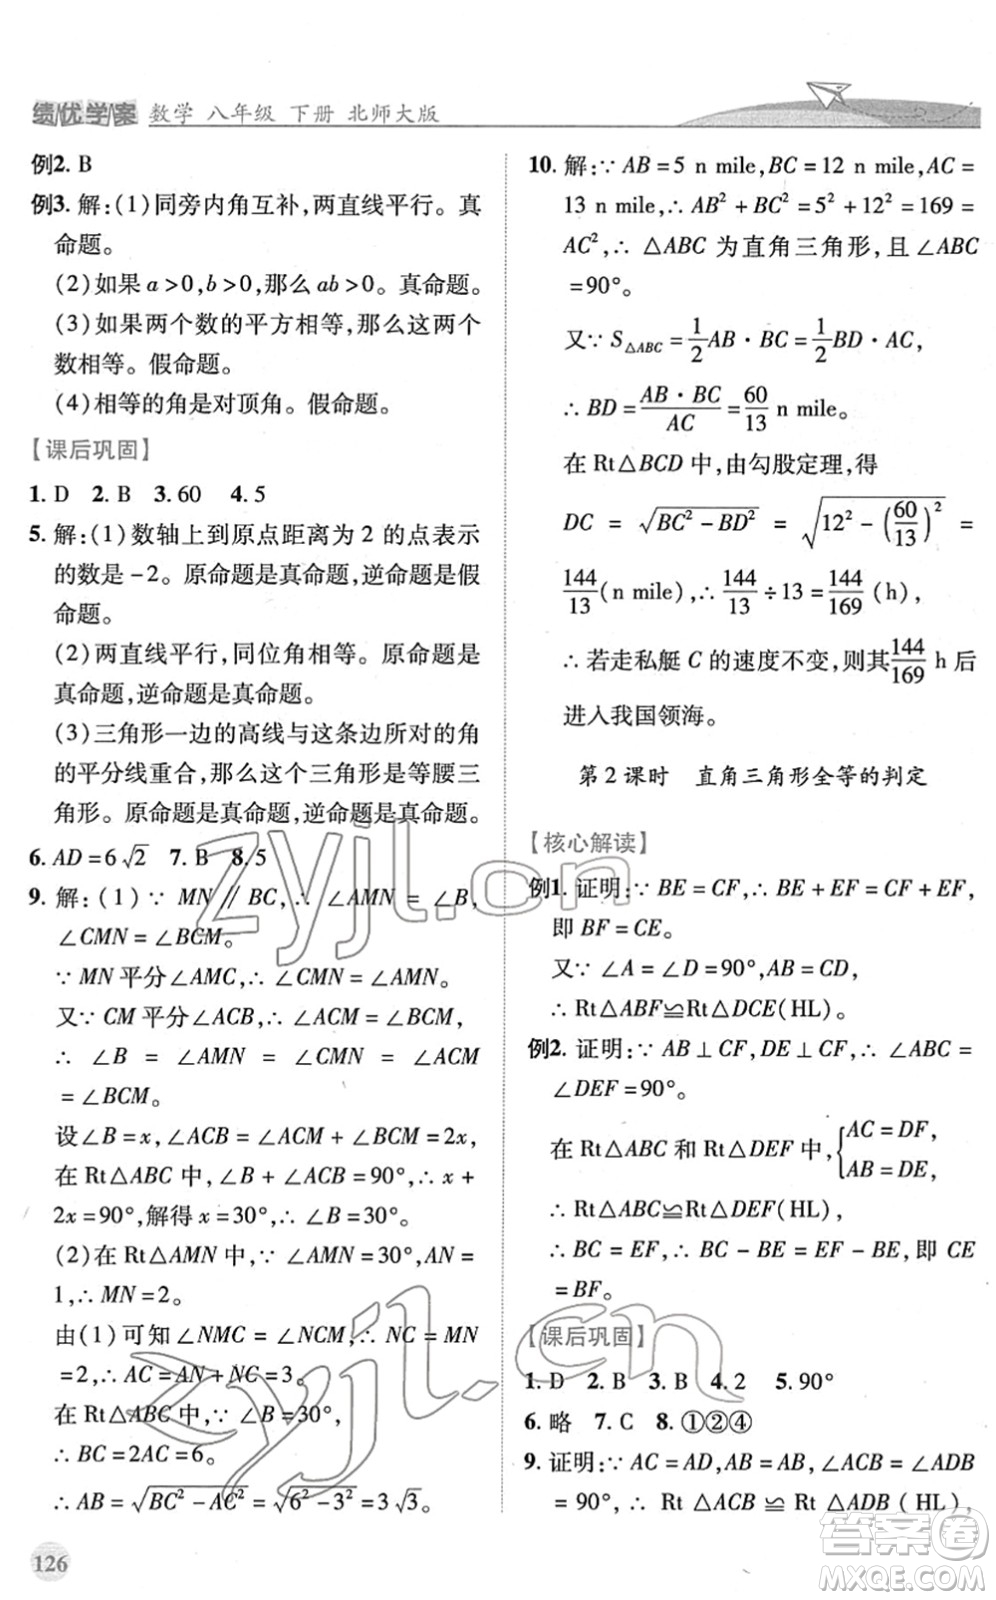 绩优学案 数学 八年级 下册 北师大版
例2. B
例3. 解:(1)同旁内角互补,两直线平行。真
命题。
(2)如果 a>0,b>0,那么 ab>0。真命题。
(3)如果两个数的平方相等,那么这两个
数相等。假命题。
(4)相等的角是对顶角。假命题。
【课后巩固】
1. D 2. B 3. 60 4. 5
5. 解:(1)数轴上到原点距离为 2 的点表示
的数是-2。原命题是真命题,逆命题是假
命题。
(2)两直线平行,同位角相等。原命题是
真命题,逆命题是真命题。
(3)三角形一边的高线与这条边所对的角
的平分线重合,那么这个三角形是等腰三
角形。原命题是真命题,逆命题是真命题。
6. AD=6√2 7. B 8. 5
9. 解:(1)∵ MN∥BC,∴ ∠AMN = ∠B,
∠CMN=∠BCM。
∵ MN 平分∠AMC,∴ ∠CMN=∠AMN。
又∵ CM 平分∠ACB,∴ ∠ACM=∠BCM,
∴ ∠B = ∠AMN = ∠CMN = ∠ACM
=∠BCM。
设∠B=x,∠ACB=∠ACM+∠BCM=2x,
在 Rt△ABC 中,∠B+∠ACB=90°,∴ x+
2x=90°,解得 x=30°,∴ ∠B=30°。
(2)在 Rt△AMN 中,∵ ∠AMN=30°,AN=
1,∴ MN=2。
由(1)可知∠NMC=∠NCM,∴ NC=MN
=2,∴ AC=AN+NC=3。
在 Rt△ABC 中,∵ ∠B=30°,
∴ BC=2AC=6。
∴ AB=√(BC²-AC²)=√(6²-3²)=3√3。
126
10. 解:∵ AB=5 n mile,BC=12 n mile,AC=
13 n mile,∴ AB²+BC²=5²+12²=169=
AC²,∴ △ABC 为直角三角形,且∠ABC
=90°。
又∵ S△ABC=1/2 AB·BC=1/2 BD·AC,
∴ BD=(AB·BC)/AC=60/13 n mile。
在 Rt△BCD 中,由勾股定理,得
DC = √(BC²-BD²) = √(12²-(60/13)²) =
144/13(n mile),∴ 144/13÷13=144/169(h),
∴ 若走私艇 C 的速度不变,则其144/169 h 后
进入我国领海。
第2课时 直角三角形全等的判定
【核心解读】
例1. 证明:∵ BE=CF,∴ BE+EF=CF+EF,
即 BF=CE。
又∵ ∠A=∠D=90°,AB=CD,
∴ Rt△ABF≌Rt△DCE(HL)。
例2. 证明:∵ AB⊥CF,DE⊥CF,∴ ∠ABC=
∠DEF=90°。
在 Rt△ABC 和 Rt△DEF 中,{AC=DF,
AB=DE,
∴ Rt△ABC≌Rt△DEF(HL),
∴ BC=EF,∴ BC-BE=EF-BE,即 CE
=BF。
【课后巩固】
1. D 2. B 3. B 4. 2 5. 90°
6. 略 7. C 8. ①②④
9. 证明:∵ AC=AD,AB=AB,∠ACB=∠ADB
=90°,∴ Rt△ACB≌Rt△ADB(HL),
zyjl.cn
zyjl.cn
答案圈
MXQE.COM